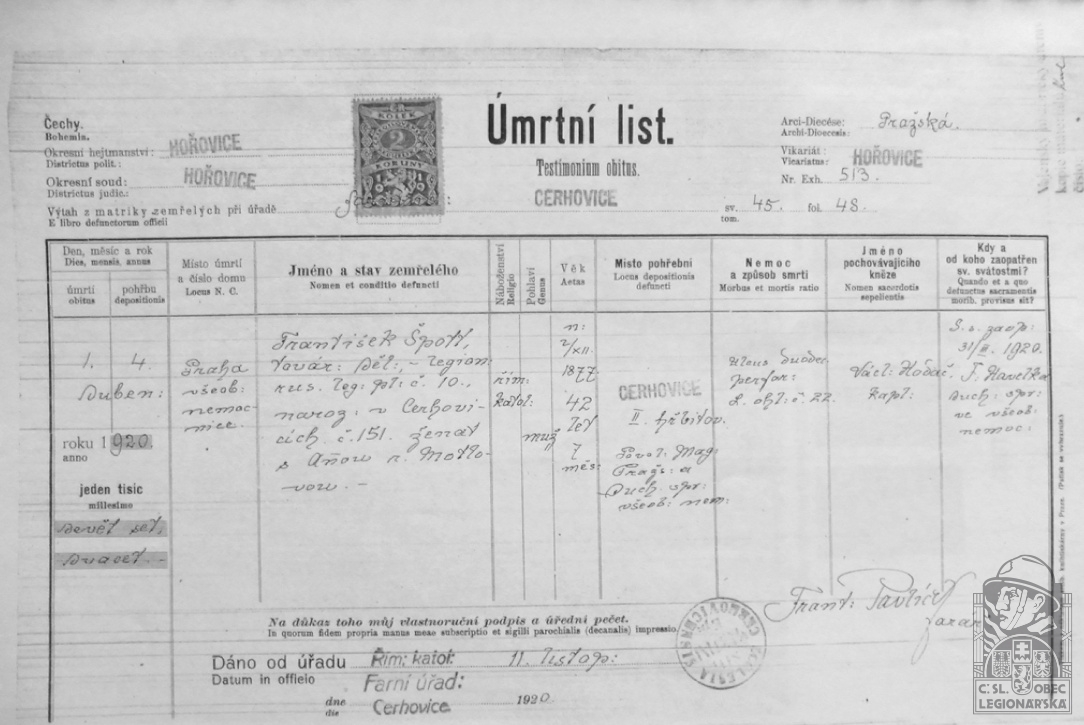 Úmrtní list.
Testimonium obitus.
CERHOVICE
Čechy.
Bohemia.
Okresní hejtmanství: HOŘOVICE
Districtus polit.:
Okresní soud: HOŘOVICE
Districtus judic.:
Výtah z matriky zemřelých při úřadě
E libro defunctorum officii
KOLEK
2
KORUNY
1919
Arci-Diecése: Pražská.
Archi-Dioecesis:
Vikariát: HOŘOVICE
Vicariatus:
Nr. Exh. 513.
sv. 45. fol. 48.
tom.
Den, měsíc a rok
Dies, mensis, annus
úmrtí
obitus
pohřbu
depositionis
Místo úmrtí
a číslo domu
Locus N. C.
Jméno a stav zemřelého
Nomen et conditio defuncti
Náboženství
Religio
Pohlaví
Genus
Věk
Aetas
Místo pohřební
Locus depositionis
defuncti
Nemoc
a způsob smrti
Morbus et mortis ratio
Jméno
pochovávajícího
kněze
Nomen sacerdotis
sepelientis
Kdy a
od koho zaopatřen
sv. svátostmi?
Quando et a quo
defunctus sacramentis
morib. provisus sit?
1. 4.
Duben:
roku 1920.
anno
jeden tisíc
millesimo
Devět set,
Dvacet.-
Praha
všeob:
nemoc-
nice.
František Špott,
továr: děl: - legion:
rus. leg: pl: č. 10.,
naroz: v Cerhovi-
cích č. 151. ženat
s Annou r. Motlo-
vou. -
řím:
katol:
muž
n:
2/XII.
1877
42
let
7
měs:
CERHOVICE
II. hřbitov.
Povol: Mag:
Pražs: a
Duch. spr:
všeob: nem:
Ulcus duoden:
perfor:
L. ohl: č. 22.
Václ: Hodač,
kapl:
S. s. zaop:
1920.
F. Havelka
duch: spr:
ve všeob:
nemoc:
Na důkaz toho můj vlastnoruční podpis a úřední pečeť.
In quorum fidem propria manus meae subscriptio et sigilli parochialis (decanalis) impressio.
Frant: Pavlíček
farář
Dáno od úřadu Řím: katol: 11. listop:
Datum in officio Farní úřad:
dne Cerhovice 1920
die
Č: SL. OBEC
LEGIONÁŘSKÁ